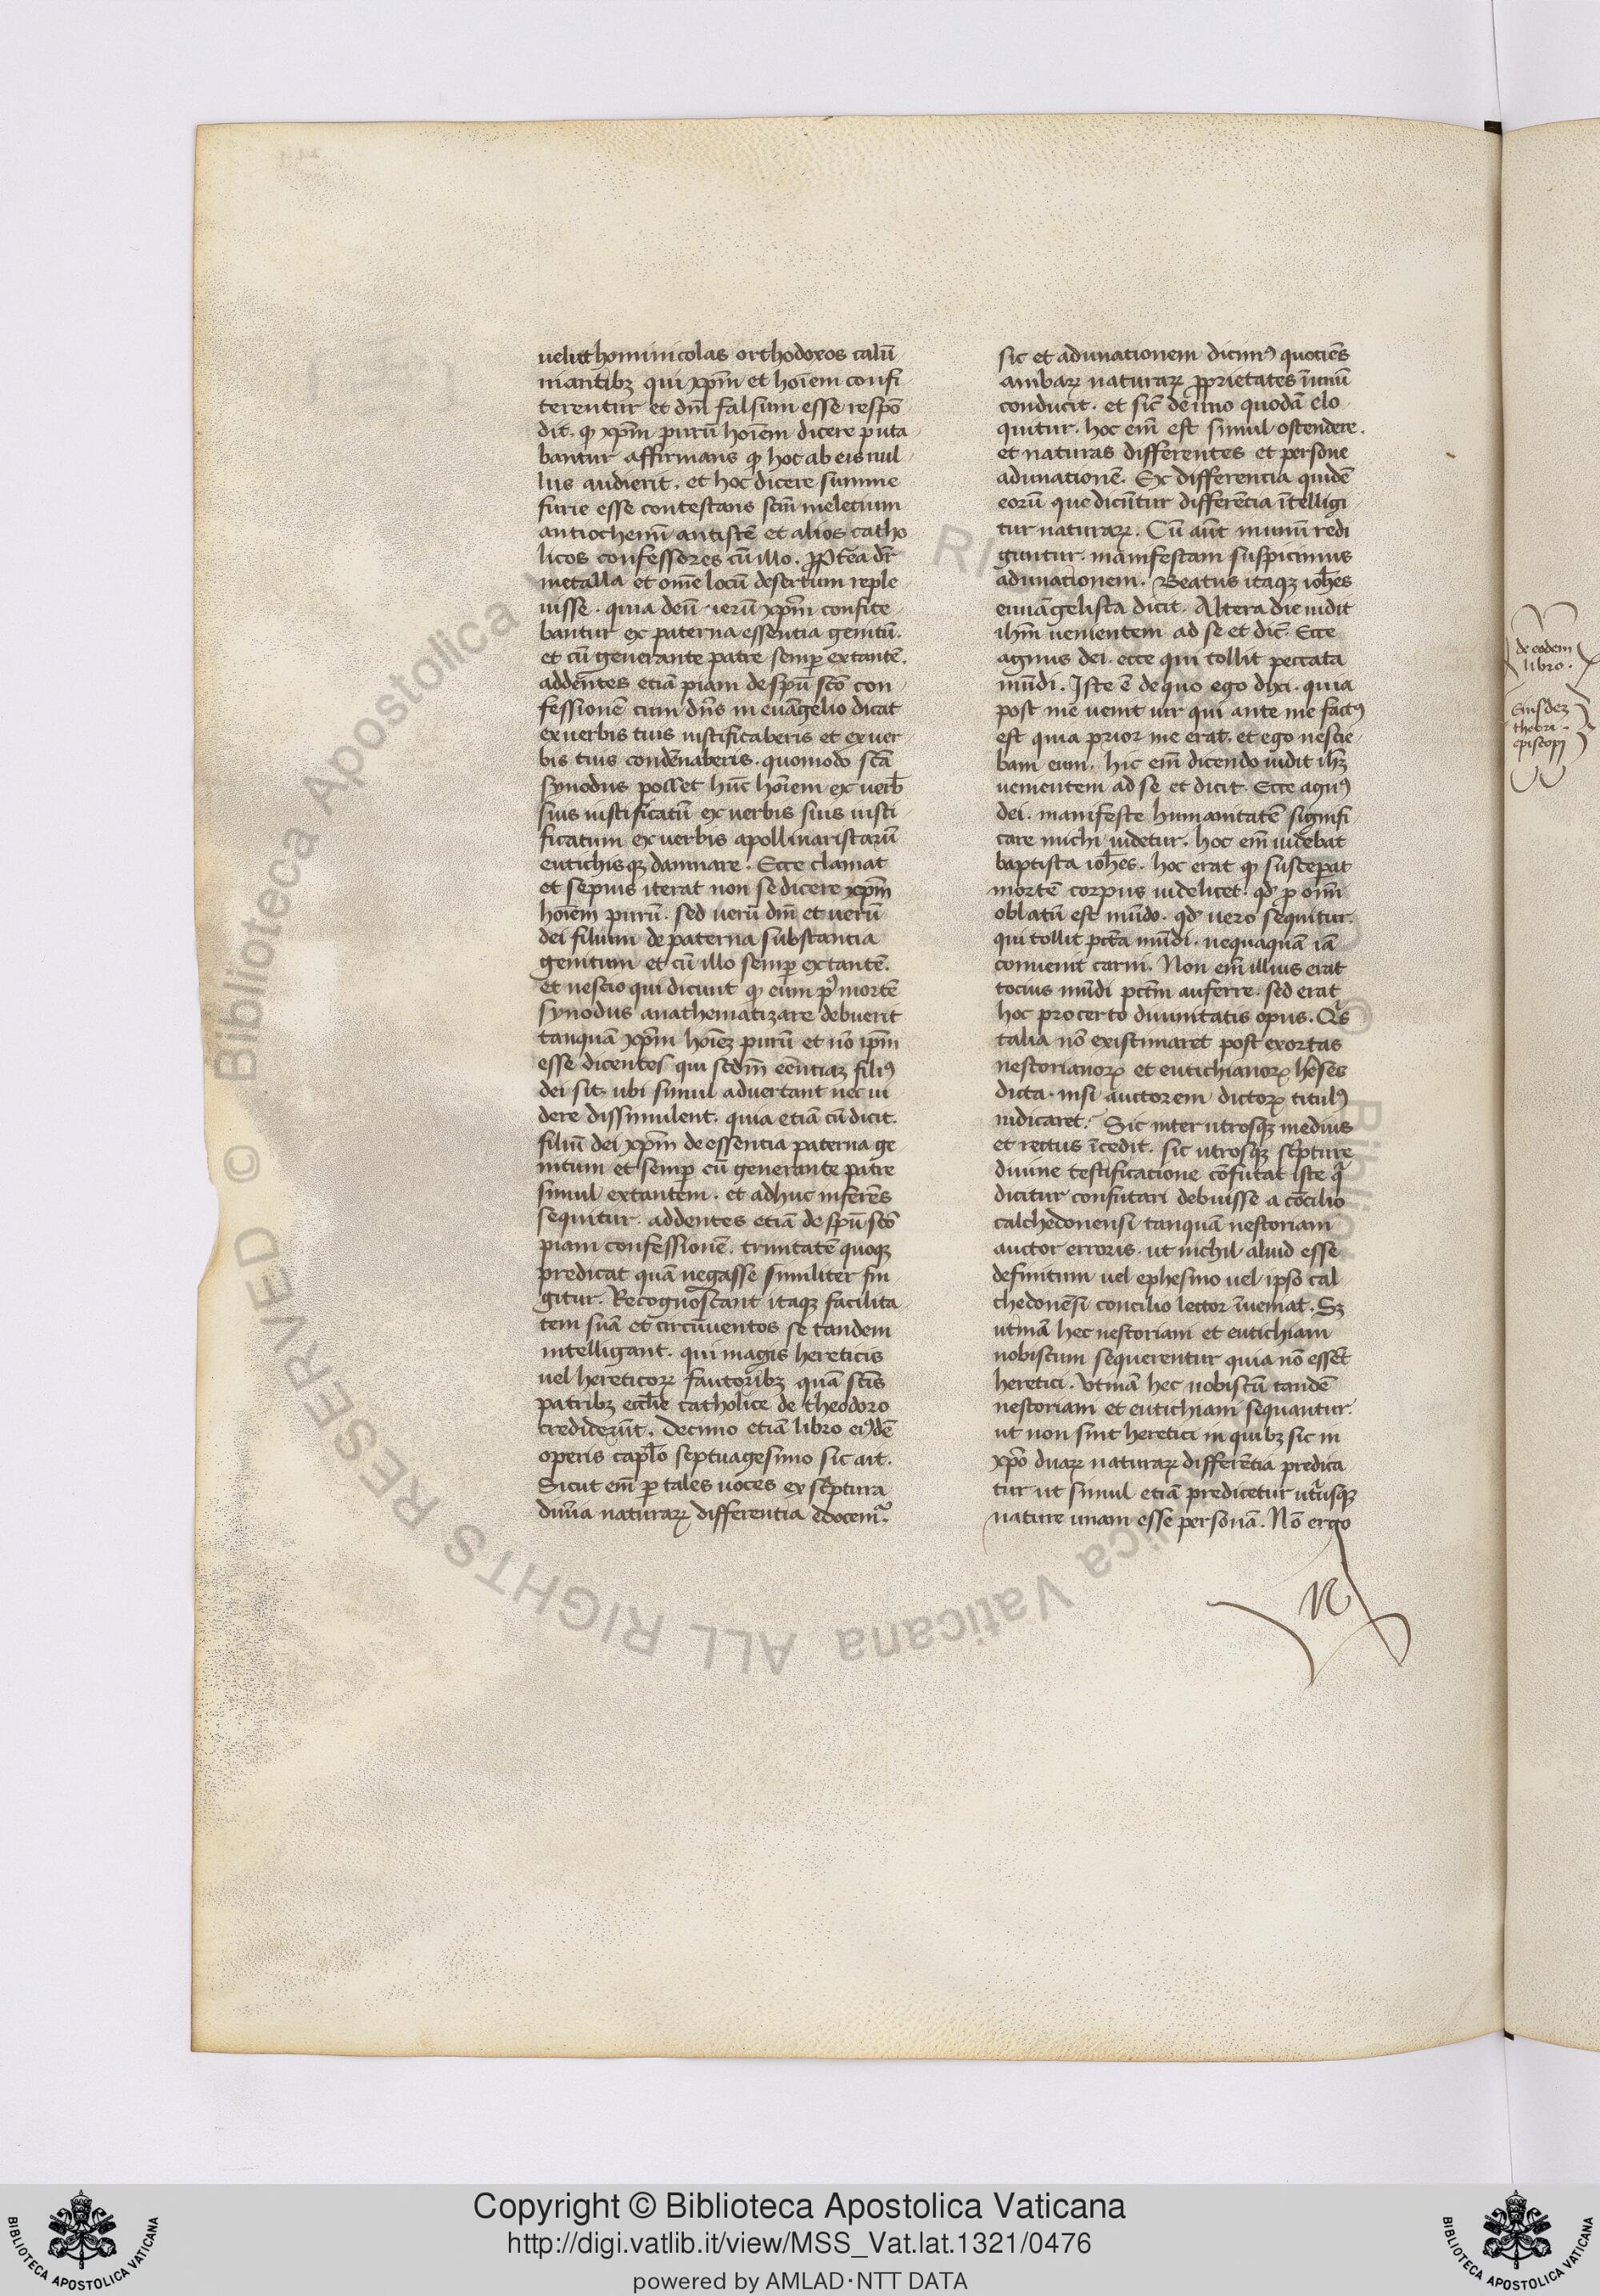 ueluthominicolas orthodoxos calū
niantibꝫ qui xp̄m et hoīem confi
terentur et dm̄ falsum esse respō
dit. ꝙ xp̄m purū hoīem dicere puta
bantur affirmans ꝙ hoc ab eis nul
lus audierit. et hoc dicere summe
furie esse contestans scm̄ meletium
antiochenū antistē et alios catho
licos confessores cū illo. ꝓpt̄ea dr̄
metalla et om̄e locū desertum reple
uisse. quia deū uerū xp̄m confite
bantur ex paterna essentia genitū.
et cū generante patre semꝑ extantē.
addentes etiā piam de spū scō con
fessionē cum dn̄s in euāgelio dicat
ex uerbis tuis iustificaberis et ex uer
bis tuis condēnaberis. quomodo scā
synodus posset hūc hoīem ex uerb̄
suis iustificatū ex uerbis suis iusti
ficatum ex uerbis apollinaristarū
eutichisqꝫ damnare. Ecce clamat
et sepius iterat non se dicere xp̄m
hoīem purū. sed uerū dm̄ et uerū
dei filium de paterna substancia
genitum et cū illo semꝑ extantē.
et nescio qui dicunt ꝙ eum pꝰ mortē
synodus anathematizare debuerit
tanquā xp̄m hoīeꝫ purū et nō ip̄m
esse dicentes qui scdm̄ eēntiaꝫ filiꝰ
dei sit. ubi simul aduertant nec ui
dere dissimulent. quia etiā cū dicit.
filiū dei xp̄m de essencia paterna ge
nitum et semꝑ cū generante patre
simul extantem. et adhuc inferēs
sequitur. addentes etiā de spū scō
piam confessionē. trinitatē quoqꝫ
predicat quā negasse similiter fin
gitur. Recognoscant itaqꝫ facilita
tem suā et circūuentos se tandem
intelligant. qui magis hereticis
uel hereticoꝝ fautoribꝫ quā scīs
patribꝫ eccl̄ie catholice de theodoro
crediderūt. Decimo etiā libro eiꝰdē
operis capl̄o septuagesimo sic ait.
Sicut em̄ ꝑ tales uoces ex scptura
diuīa naturaꝝ differentia edocemꝰ.
sic et adunationem dicimꝰ quotiēs
ambaꝝ naturaꝝ ꝓprietates ī unū
conducit. et sic̄ de uno quodā elo
quitur. hoc em̄ est simul ostendere.
et naturas differentes et persone
adunationē. Ex differencia quidē
eorū que dicūtur differētia ītelligi
tur naturaꝝ. Cū aūt in unū redi
guntur. manifestam suspicimus
adunationem. Beatus itaqꝫ ioh̄es
euuāgelista dicit. Altera die uidit
ih̄m uenientem ad se et dic̄. Ecce
agnus dei. ecce qui tollit peccata
mūdi. Iste ē de quo ego dixi. quia
post me uenit uir qui ante me factꝰ
est quia prior me erat. et ego nescie
bam eum. hic em̄ dicendo uidit ih̄ꝫ
uenientem ad se et dicit. Ecce agnꝰ
dei. manifeste humanitatē signifi
care michi uidetur. hoc em̄ uidebat
baptista ioh̄es. hoc erat ꝙ susceperat
mortē corpus uidelicet. qd̄ ꝓ om̄i
oblatū est mūdo. qd̄ uero sequitur.
qui tollit pctā mūdi. nequaquā iā
conuenit carni. Non em̄ illius erat
tocius mūdi pctm̄ auferre. sed erat
hoc procerto diuinitatis opus. Qͥs
talia nō existimaret post exortas
nestorianoꝝ et eutichianoꝝ heēses
dicta. nisi auctorem dictoꝝ titulꝰ
indicaret. Sic inter utrosqꝫ medius
et rectus īcedit. sic utrosqꝫ scpture
diuine testificatione cōfutat iste qͥ
dicitur confutari debuisse a cōcilio
calchedonensi tanquā nestoriani
auctor erroris. ut nichil aliud esse
definitum uel ephesino uel ipso cal
chedonēsi concilio lector īueniat. Sꝫ
utinā hec nestoriani et eutichiani
nobiscum sequerentur quia nō essēt
heretici. Utinā hec nobiscū tandē
nestoriani et eutichiani sequantur.
ut non sint heretici in quibꝫ sic in
xp̄o duaꝝ naturaꝝ differētia predica
tur ut simul etiā predicetur utͥusqꝫ
nature unam esse personā. Nō ergo
de eodem
libro.
Eiusdeꝫ
episcopi
Copyright © Biblioteca Apostolica Vaticana
http://digi.vatlib.it/view/MSS_Vat.lat.1321/0476
powered by AMLAD·NTT DATA
BIBLIOTECA APOSTOLICA VATICANA
BIBLIOTECA APOSTOLICA VATICANA